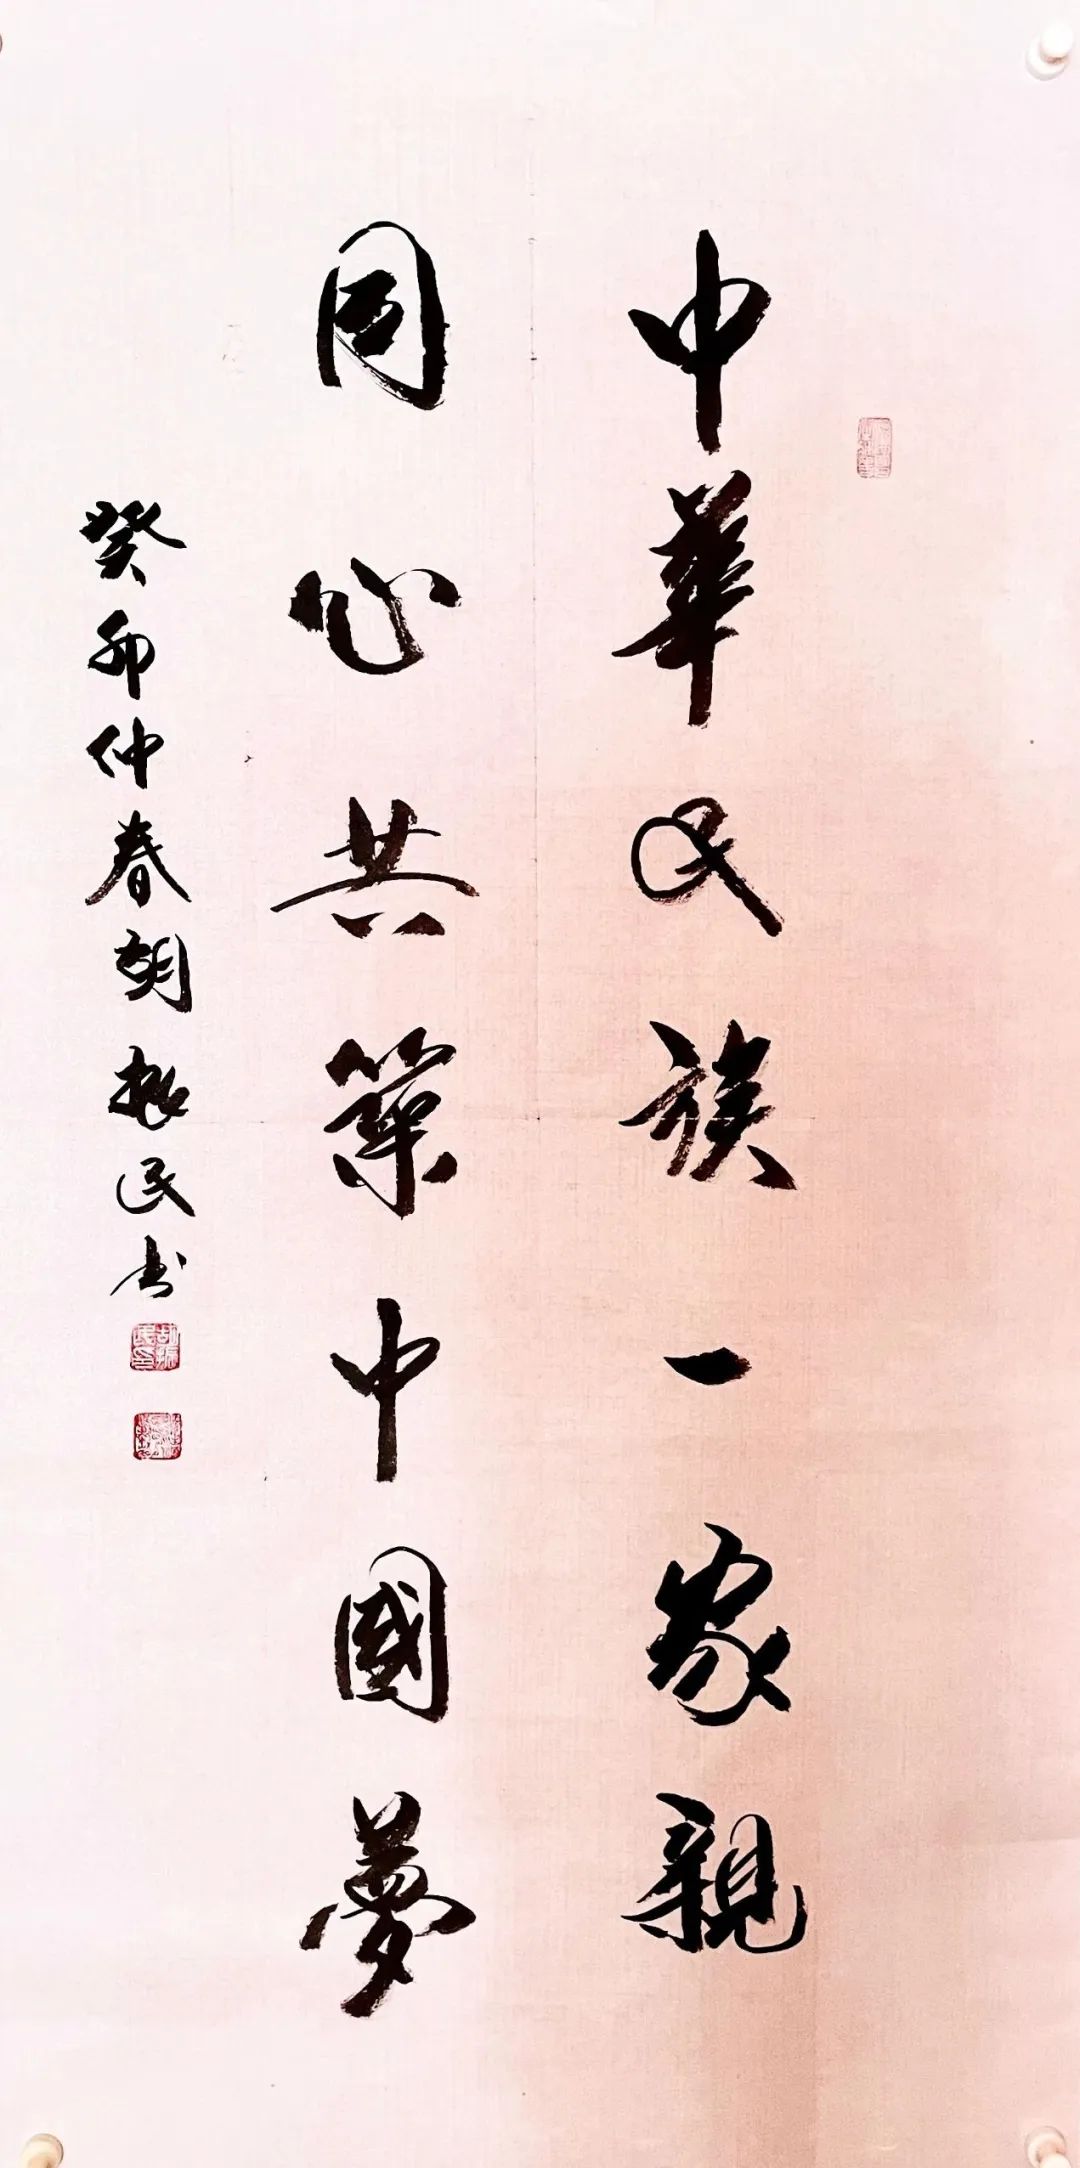 中華民族一家親
同心共築中國夢
癸卯仲春胡振民书